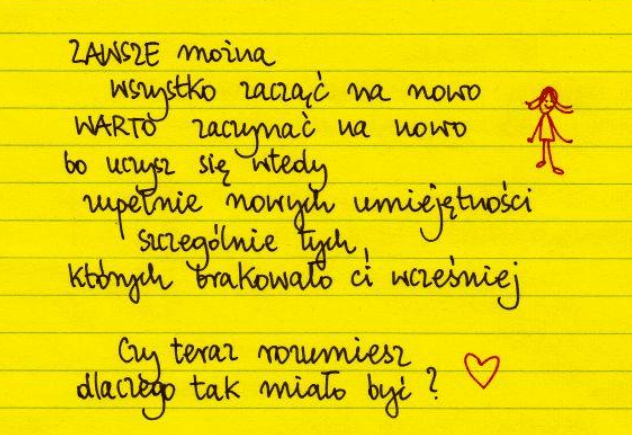 ZAWSZE można
wszystko zacząć na nowo
WARTO zaczynać na nowo
bo uczysz się wtedy
zupełnie nowych umiejętności
szczególnie tych,
których brakowało ci wcześniej
Czy teraz rozumiesz
dlaczego tak miało być?